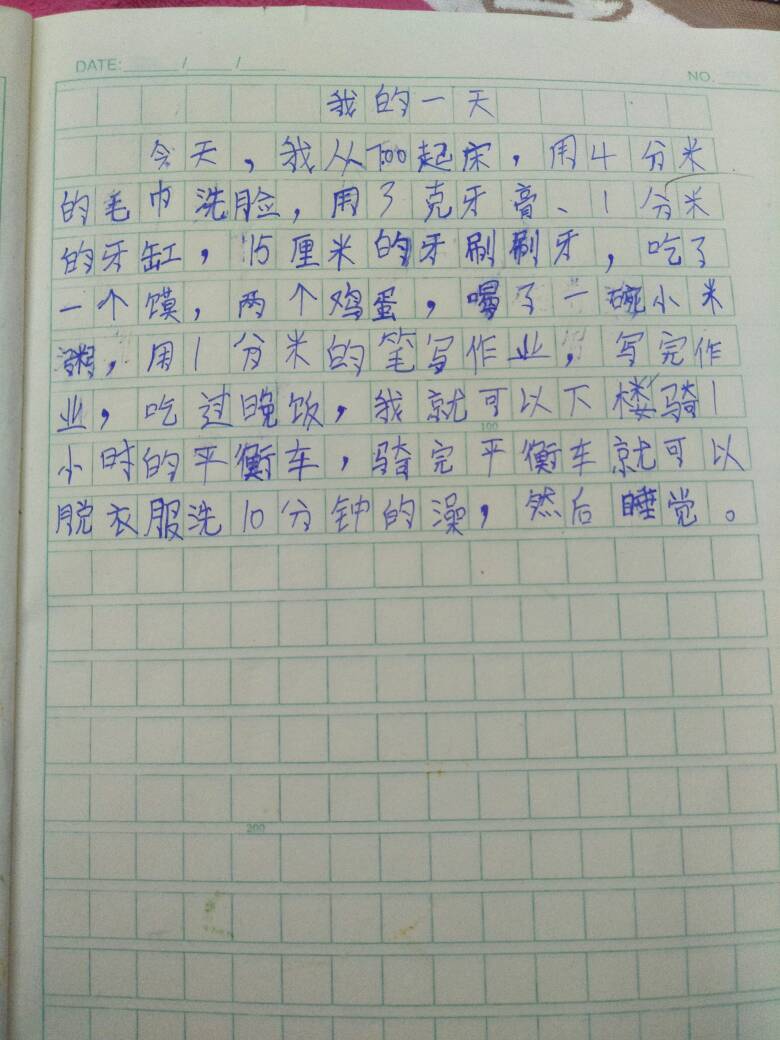 DATE: / /
NO.
我的一天
今天，我从7:00起床，用4分米
的毛巾洗脸，用3克牙膏、1分米
的牙缸，15厘米的牙刷刷牙，吃了
一个馍，两个鸡蛋，喝了一碗小米
粥，用1分米的笔写作业，写完作
业，吃过晚饭，我就可以下楼骑1
100
小时的平衡车，骑完平衡车就可以
脱衣服洗10分钟的澡，然后睡觉。
200